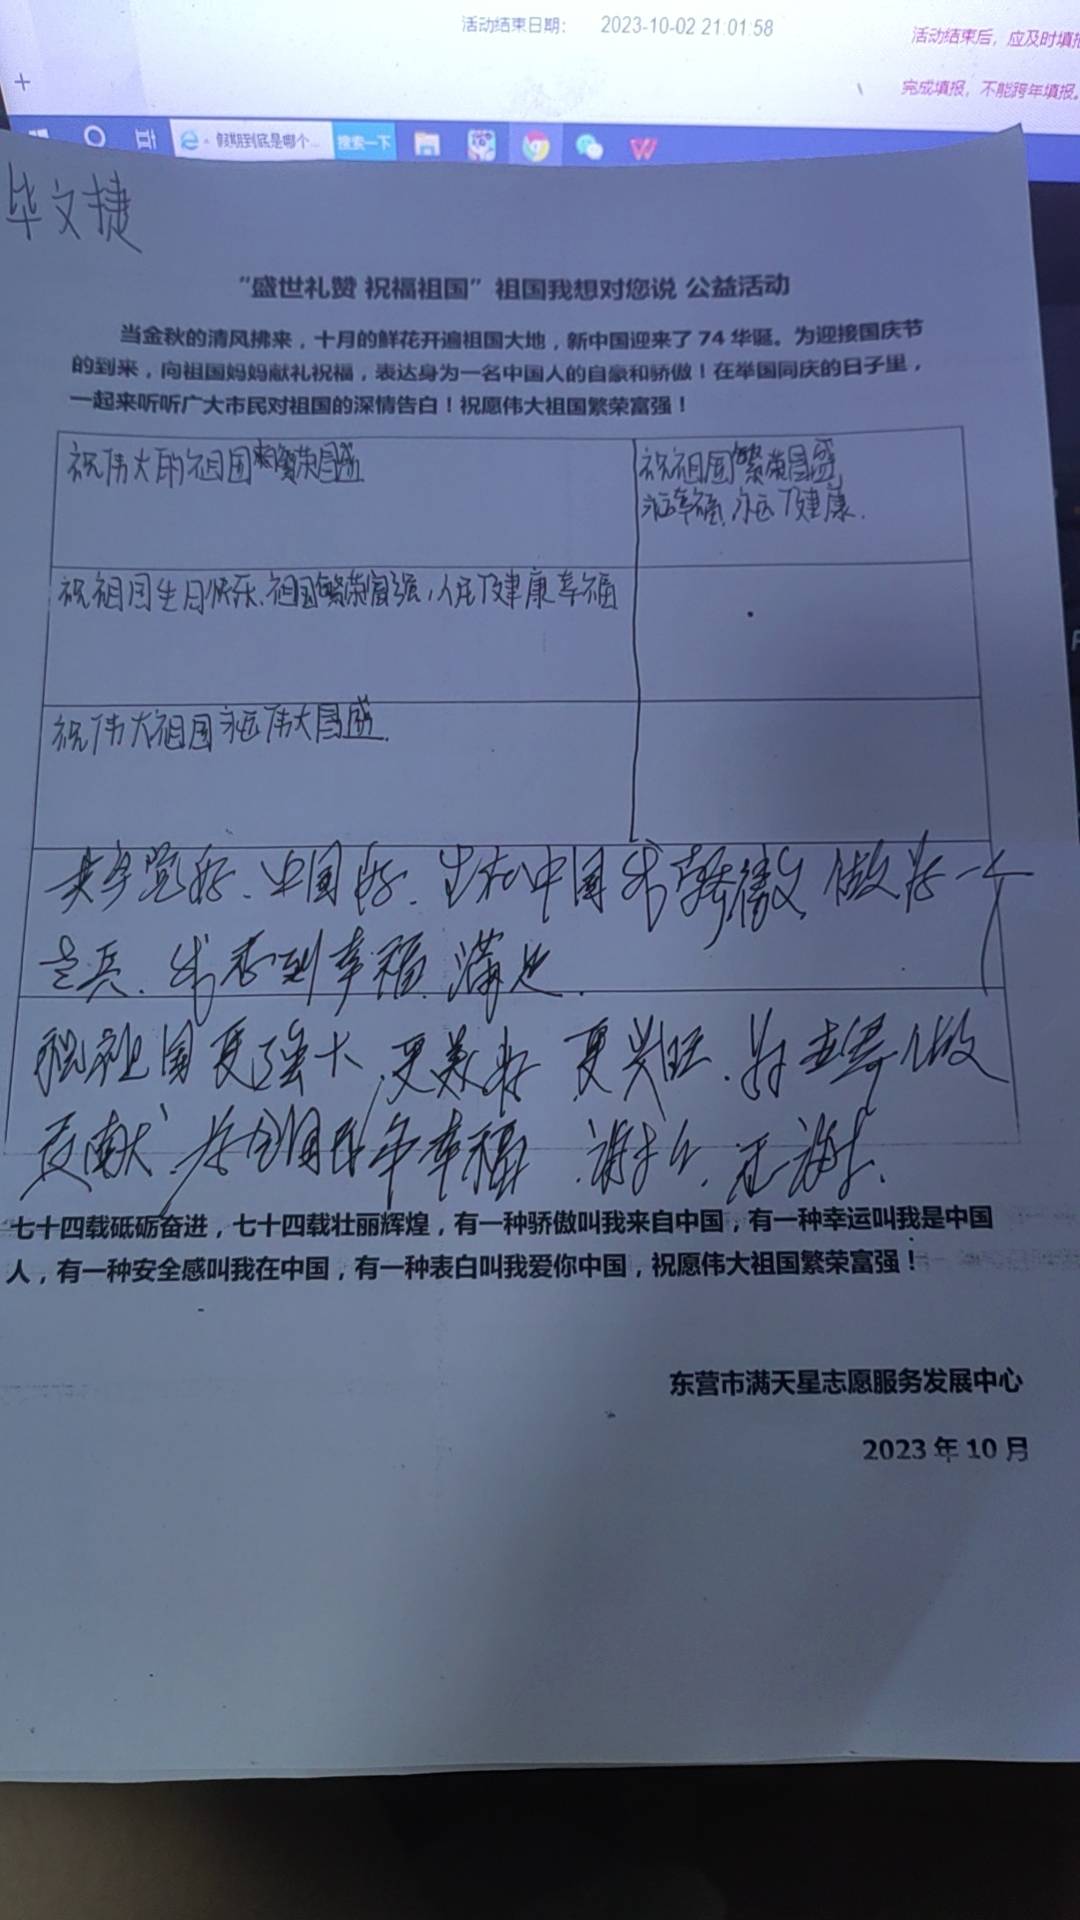 活动结束日期： 2023-10-02 21:01:58
活动结束后，应及时填报
完成填报，不能跨年填报。
假期到底是哪个... 搜索一下
毕文捷
“盛世礼赞 祝福祖国”祖国我想对您说 公益活动
当金秋的清风拂来，十月的鲜花开遍祖国大地，新中国迎来了 74 华诞。为迎接国庆节
的到来，向祖国妈妈献礼祝福，表达身为一名中国人的自豪和骄傲！在举国同庆的日子里，
一起来听听广大市民对祖国的深情告白！祝愿伟大祖国繁荣富强！
祝伟大的祖国繁荣昌盛
祝祖国繁荣昌盛
永远幸福，永远健康.
祝祖国生日快乐、祖国繁荣富强，人民健康幸福
祝伟大祖国永远伟大昌盛.
共产党好、中国好. 生在中国我骄傲 做为一个
老兵. 我感到幸福 满足.
祝祖国更强大、更美好 更兴旺.
贡献 为全国民争幸福
七十四载砥砺奋进，七十四载壮丽辉煌，有一种骄傲叫我来自中国，有一种幸运叫我是中国
人，有一种安全感叫我在中国，有一种表白叫我爱你中国，祝愿伟大祖国繁荣富强！
东营市满天星志愿服务发展中心
2023 年 10 月